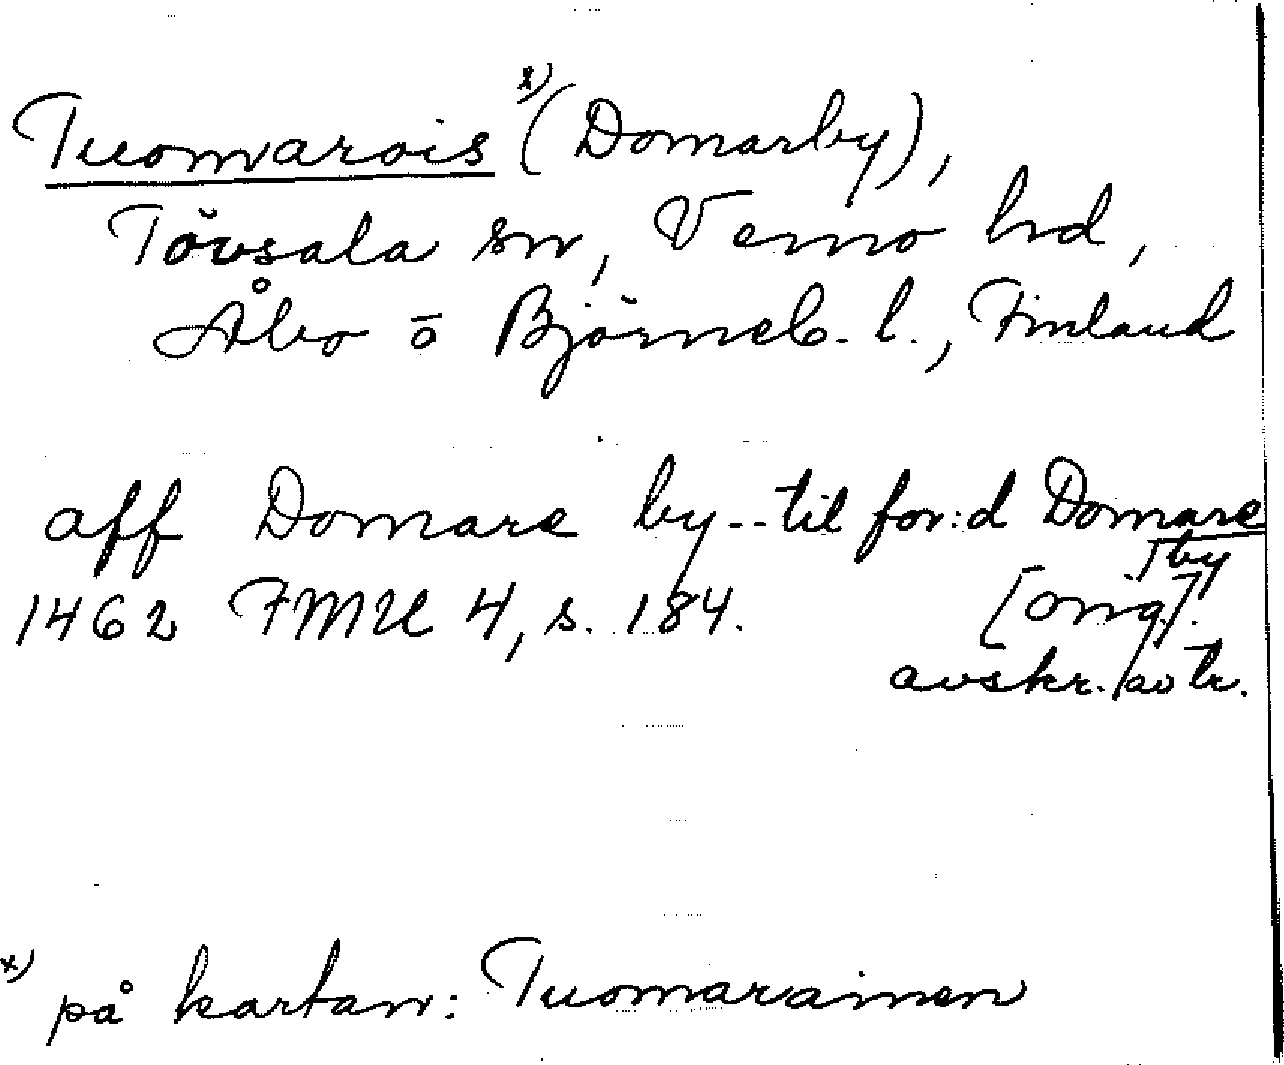 Tuomarois x) (Domarby),
Tövsala sn, Vemo hrd,
Åbo ō Björneb. l., Finland
aff Domare by -- til for:d Domare
by
1462 FMU 4, s. 184. [orig].
avskr. /
x) på kartan: Tuomarainen